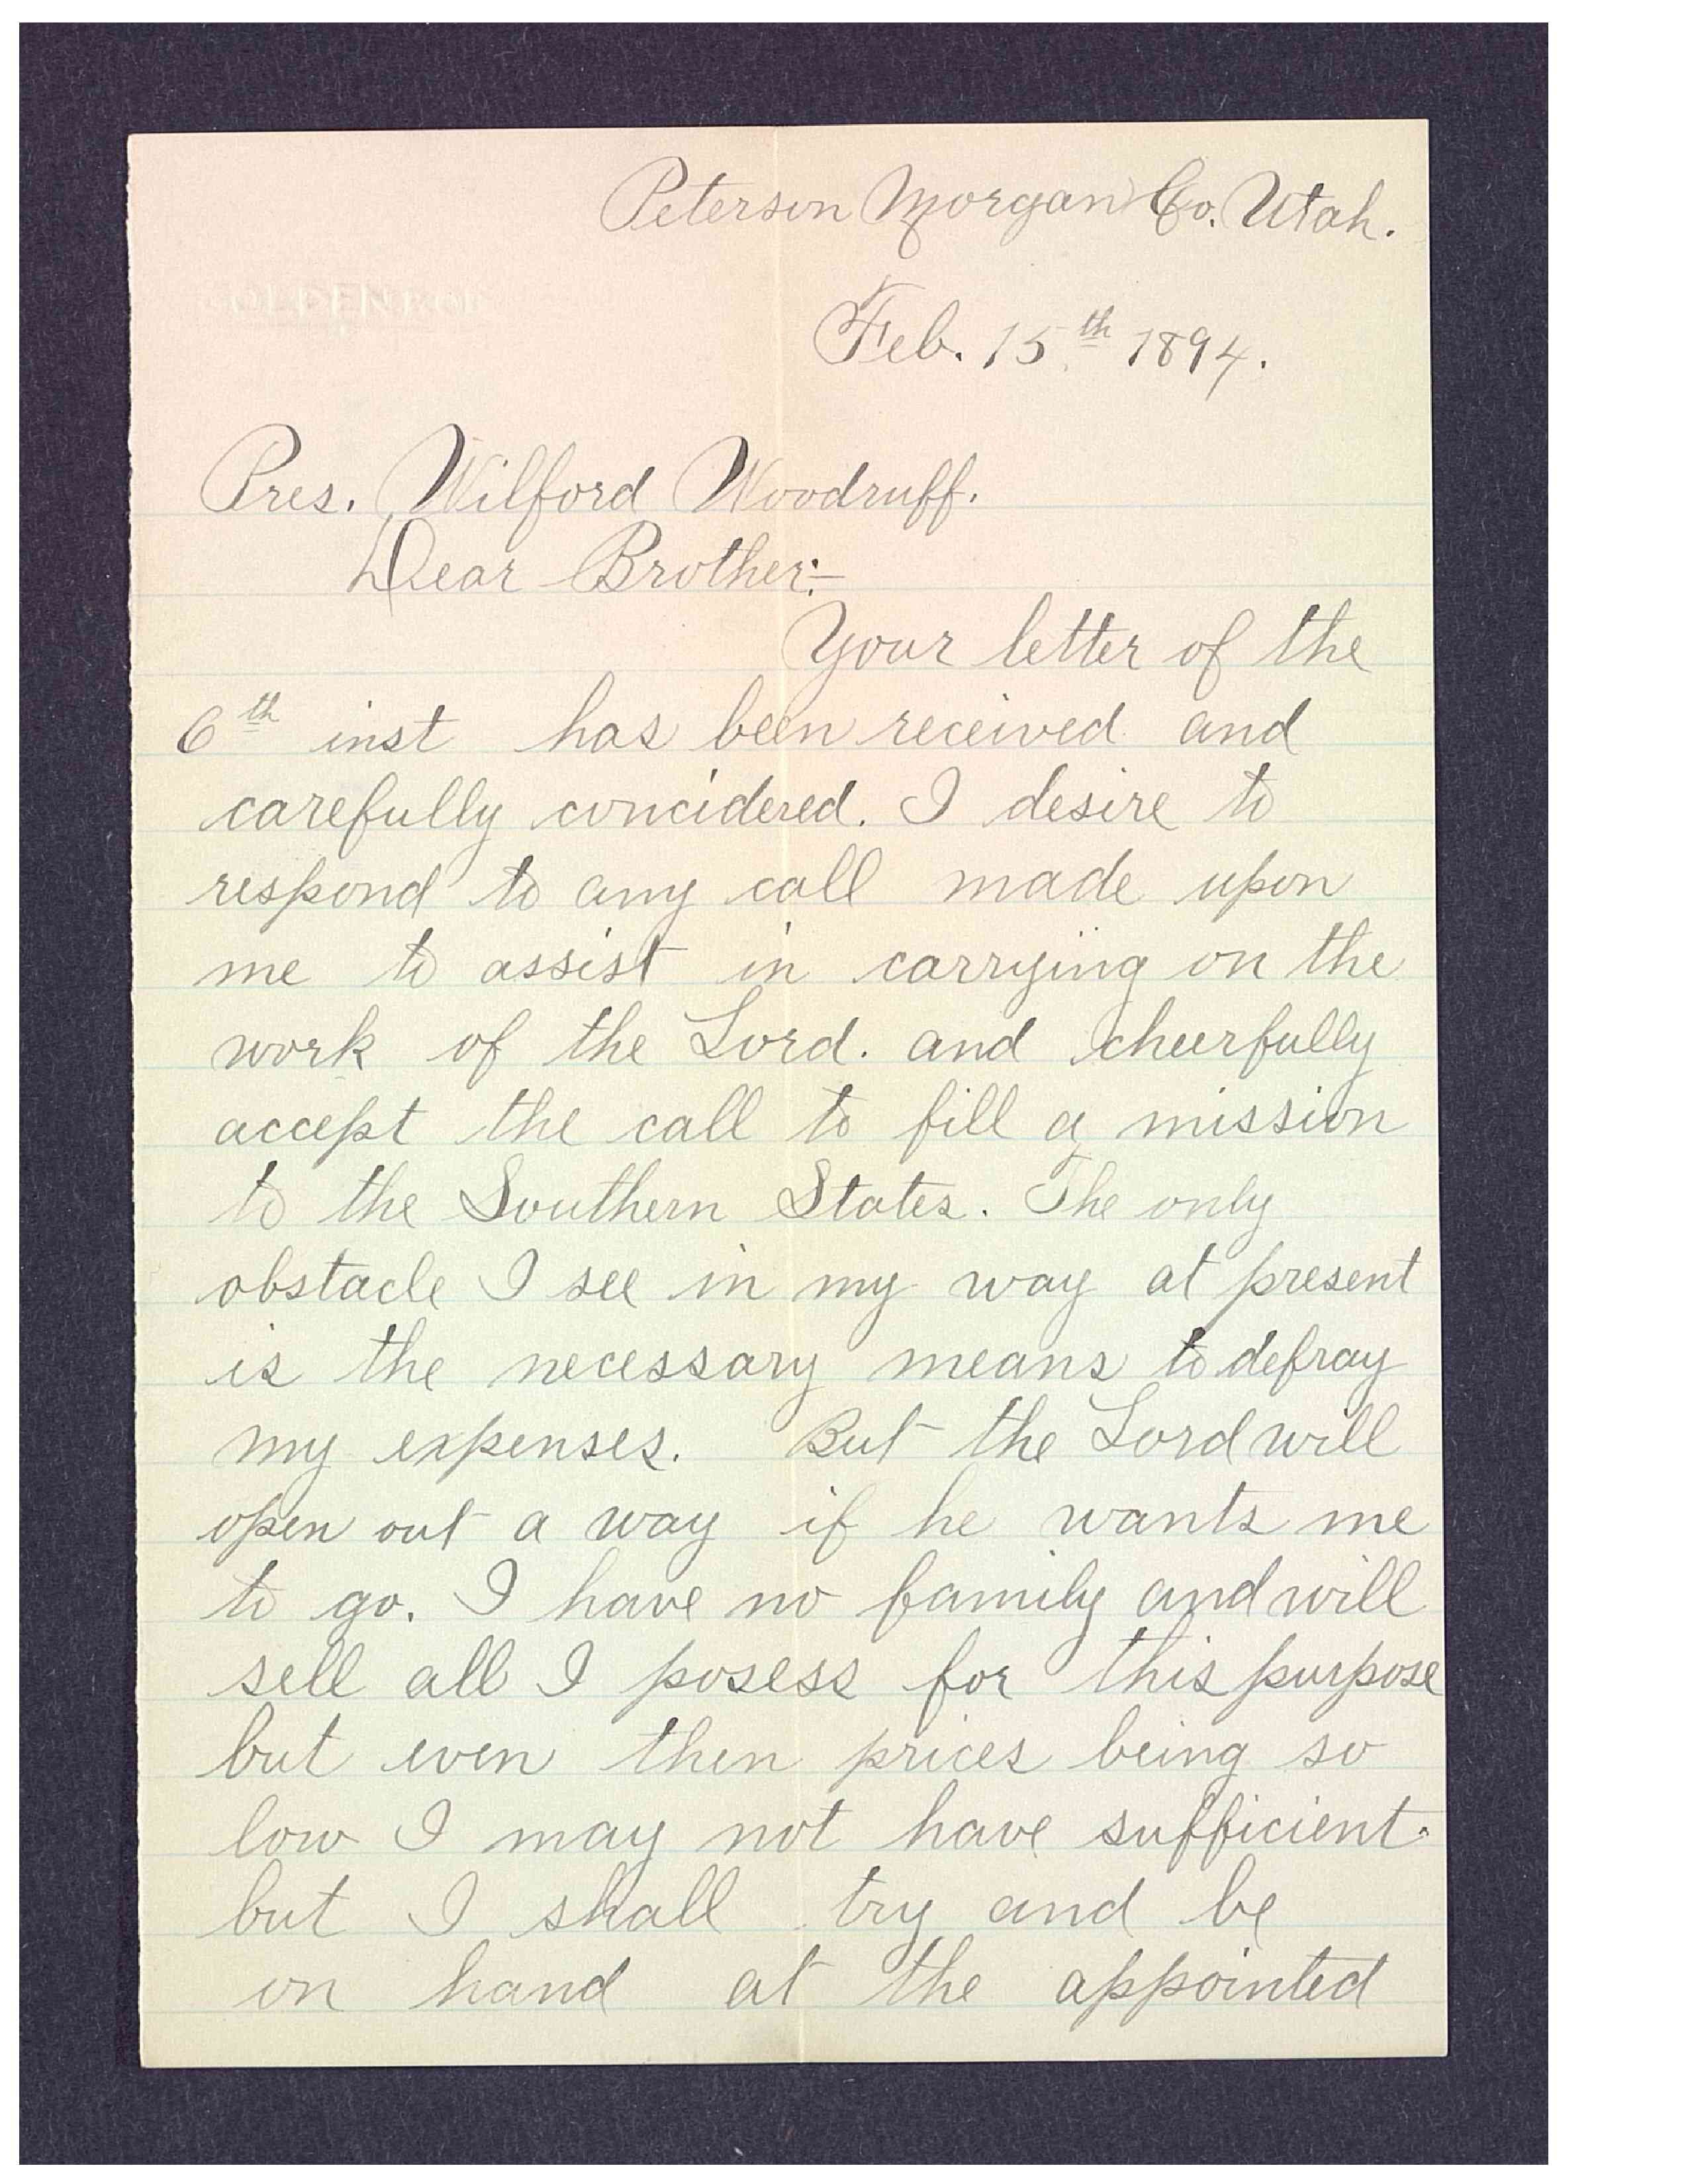 Peterson Morgan Co. Utah.
Feb. 15th 1894.
Pres. Wilford Woodruff.
Dear Brother:-
Your letter of the
6th inst has been received and
carefully concidered. I desire to
respond to any call made upon
me to assist in carrying on the
work of the Lord. and cheerfully
accept the call to fill a mission
to the Southern States. The only
obstacle I see in my way at present
is the necessary means to defray
my expenses. But the Lord will
open out a way if he wants me
to go. I have no family and will
sell all I posess for this purpose
but even then prices being so
low I may not have sufficient.
but I shall try and be
on hand at the appointed